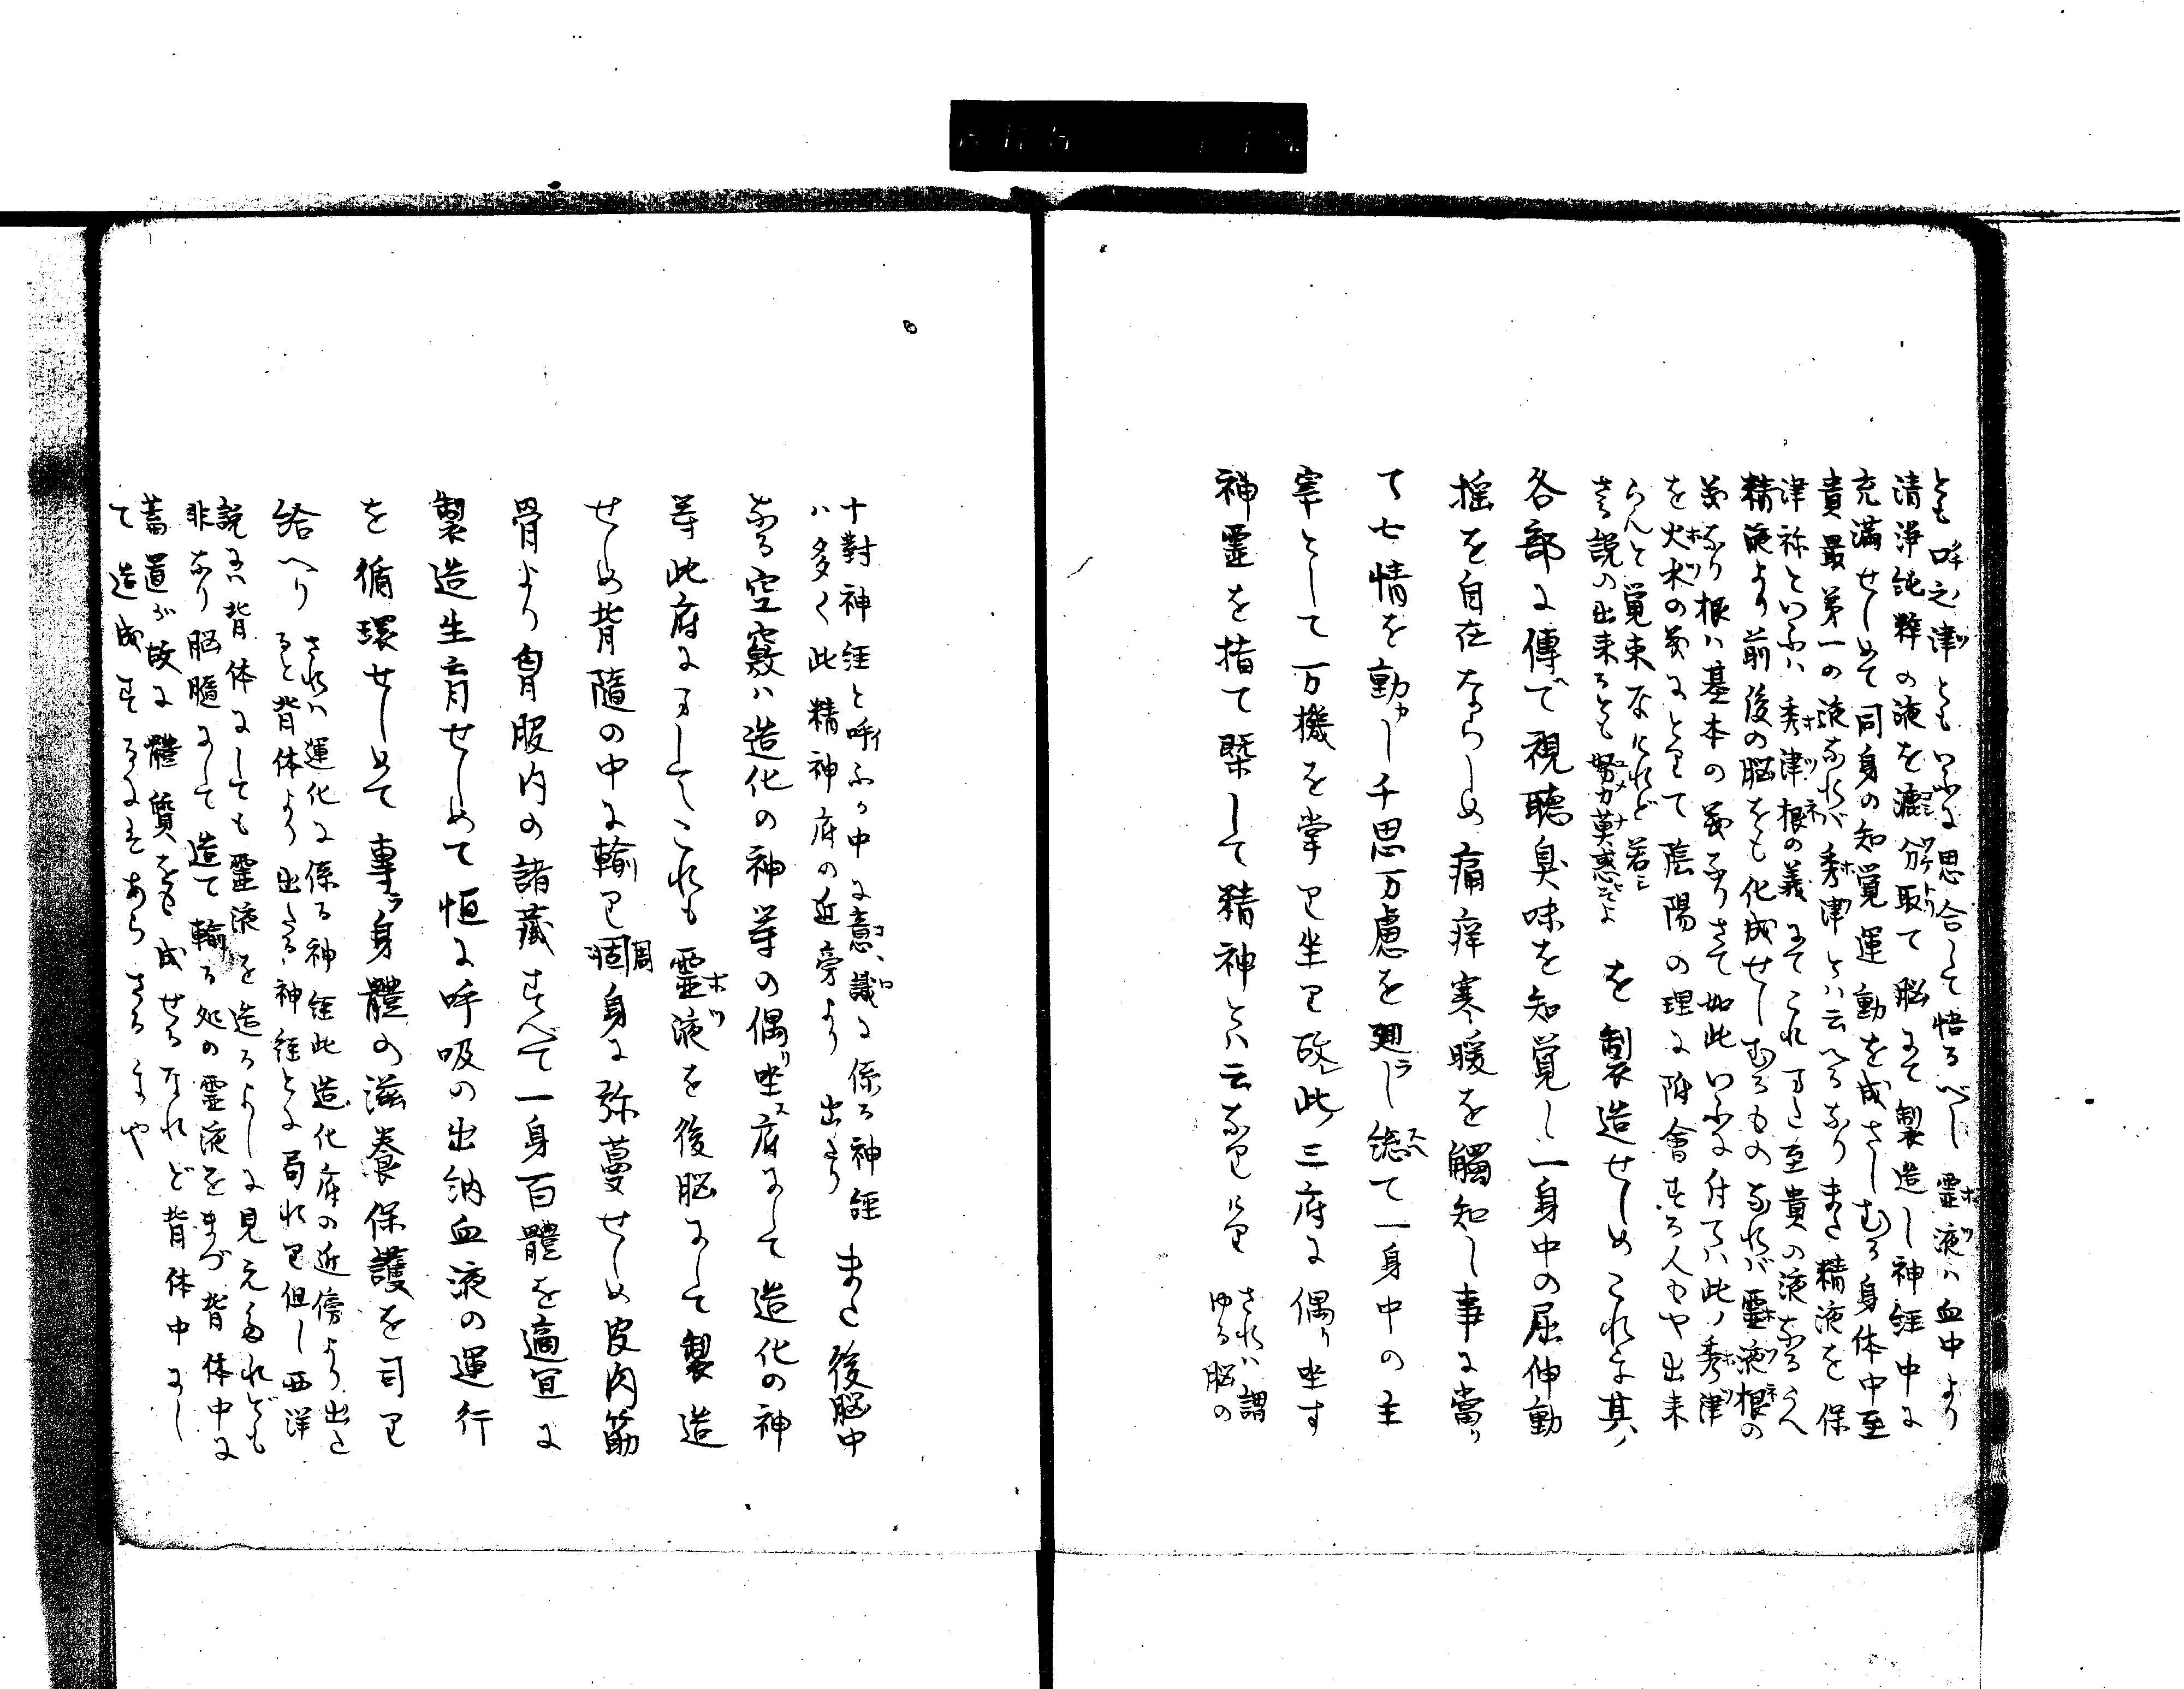 とも哮之津ともいふに思合して悟るべし霊液ハ血中より
清浄純粋の液を漉分取て脳にて製造し神経中に
充満せしめて同身の知覚運動を成さしむる身体中至
貴最第一の液なれバ秀津とハ云へるなりまた精液を保
津祢といふハ秀津根の義にてこれまた至貴の液なるうへ
精液より前後の脳をも化成せしむるものなれバ霊液根の
義なり根ハ基本の義なりさて如此いふに付てハ此ノ秀津
を火水の義にとりて陰陽の理に附會する人もや出来
らんと覚束なけれど若シ
さる説の出来るとも努力莫惑そよ
を製造せしめこれを其ノ
各部に傳て視聴臭味を知覚し一身中の屈伸動
揺を自在ならしめ痛痒寒暖を觸知し事に當リ
て七情を動かし千思万慮を廻らし總て一身中の主
宰として万機を掌り坐り故此三府に偶り坐す
神霊を指て槩して精神とハ云なりけり
されハ謂
ゆる脳の
十對神経と呼ふる中に意識に係る神経
ハ多く此精神府の近旁より出たり
また後脳中
なる空竅ハ造化の神等の偶リ坐ス府にして造化の神
等此府にましてこれも霊液を後脳にして製造
せしめ背随の中に輸り周身に弥蔓せしめ皮肉筋
骨より胃腹内の諸蔵すべて一身百體を適宜に
製造生育せしめて恒に呼吸の出納血液の運行
を循環せしめて専ラ身體の滋養保護を司り
給へり
されハ運化に係る神経此造化府の近傍より出た
ると背体より出たる神経とに局れり但し西洋
説にハ背体にしても霊液を造るよしに見えたれども
非なり脳髄にして造て輸る処の霊液をまづ背体中に
蓄置が故に體質をも成せるなれど背体中にし
て造成するにはあらさるをや